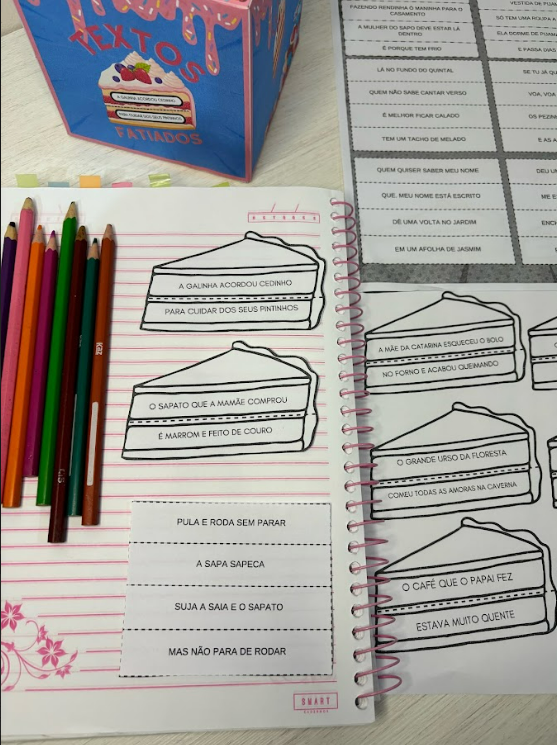 TEXTOS
A GALINHA ACORDOU CEDINHO
PARA CUIDAR DOS SEUS PINTINHOS
FATIADOS
FAZENDO RENDINHA O MANINHA PARA O
CASAMENTO
A MULHER DO SAPO DEVE ESTAR LÁ
DENTRO
É PORQUE TEM FRIO
LÁ NO FUNDO DO QUINTAL
QUEM NÃO SABE CANTAR VERSO
É MELHOR FICAR CALADO
TEM UM TACHO DE MELADO
QUEM QUISER SABER MEU NOME
QUE, MEU NOME ESTÁ ESCRITO
DÊ UMA VOLTA NO JARDIM
EM UM AFOLHA DE JASMIM
VESTIDA DE
SÓ TEM UMA
ELA DORME DE
E PASSA DIAS
SE TU JÁ
VOA, VOA
OS
E AS
ME
OCTOBER
A GALINHA ACORDOU CEDINHO
PARA CUIDAR DOS SEUS PINTINHOS
O SAPATO QUE A MAMÃE COMPROU
É MARROM E FEITO DE COURO
PULA E RODA SEM PARAR
A SAPA SAPECA
SUJA A SAIA E O SAPATO
MAS NÃO PARA DE RODAR
SMART
A MÃE DA CATARINA ESQUECEU O BOLO
NO FORNO E ACABOU QUEIMANDO
O GRANDE URSO DA FLORESTA
COMEU TODAS AS AMORAS NA CAVERNA
O CAFÉ QUE O PAPAI FEZ
ESTAVA MUITO QUENTE